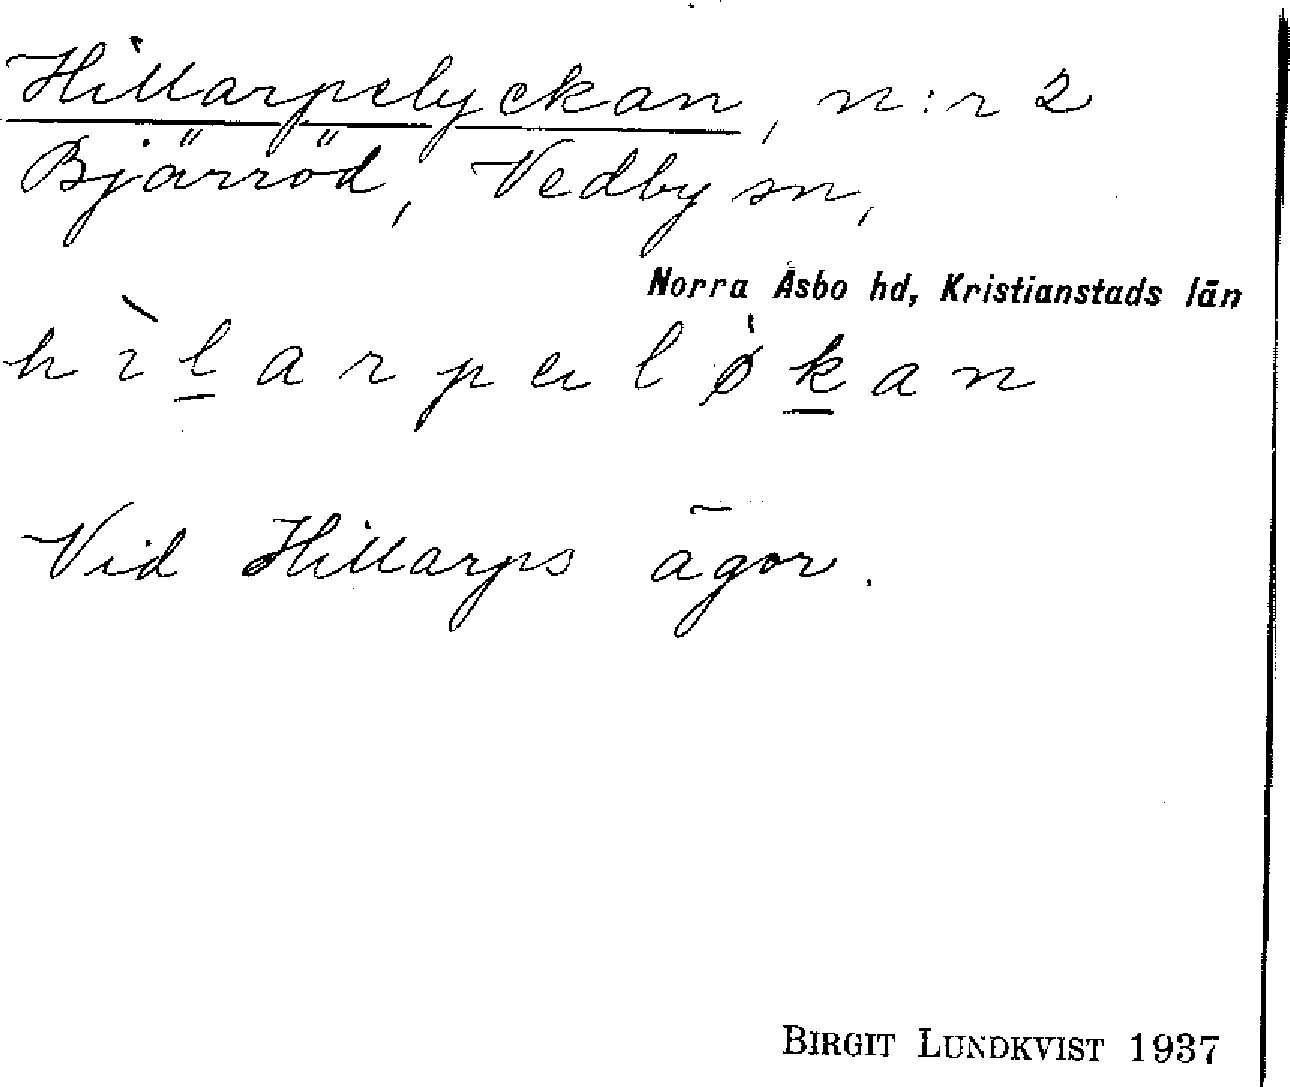 Hillarpelyckan, n:r 2
Bjärröd, Vedby sn,
Norra Åsbo hd, Kristianstads län
hìl̲arpəlø̍k̲an
Vid Hillarps ägor.
BIRGIT LUNDKVIST 1937